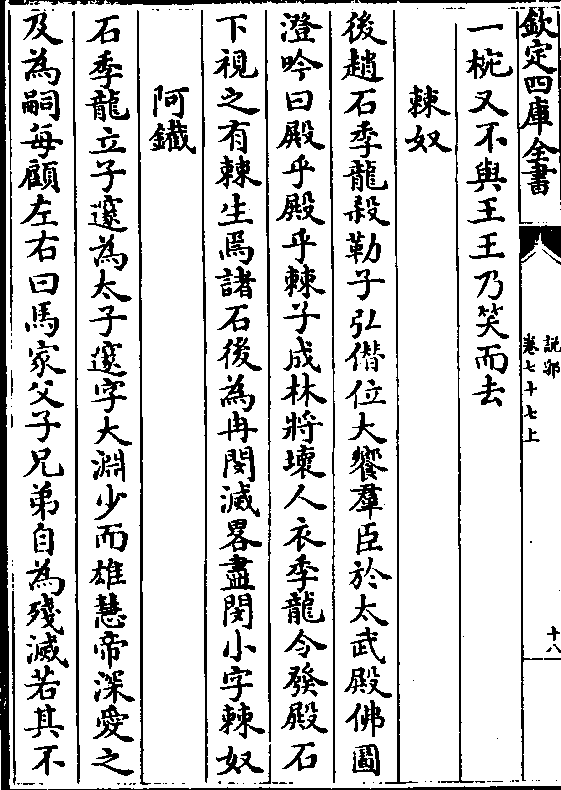 欽定四庫全書
說郛
卷七十七上
十八
一椀又不與王王乃笑而去
棘奴
後趙石季龍殺勒子弘僭位大饗羣臣於太武殿佛圖
澄吟曰殿乎殿乎棘子成林將壞人衣季龍令發殿石
下視之有棘生焉諸石後為冉閔滅畧盡閔小字棘奴
阿鐵
石季龍立子邃為太子邃字大淵少而雄慧帝深愛之
及為嗣每顧左右曰馬家父子兄弟自為殘滅若其不